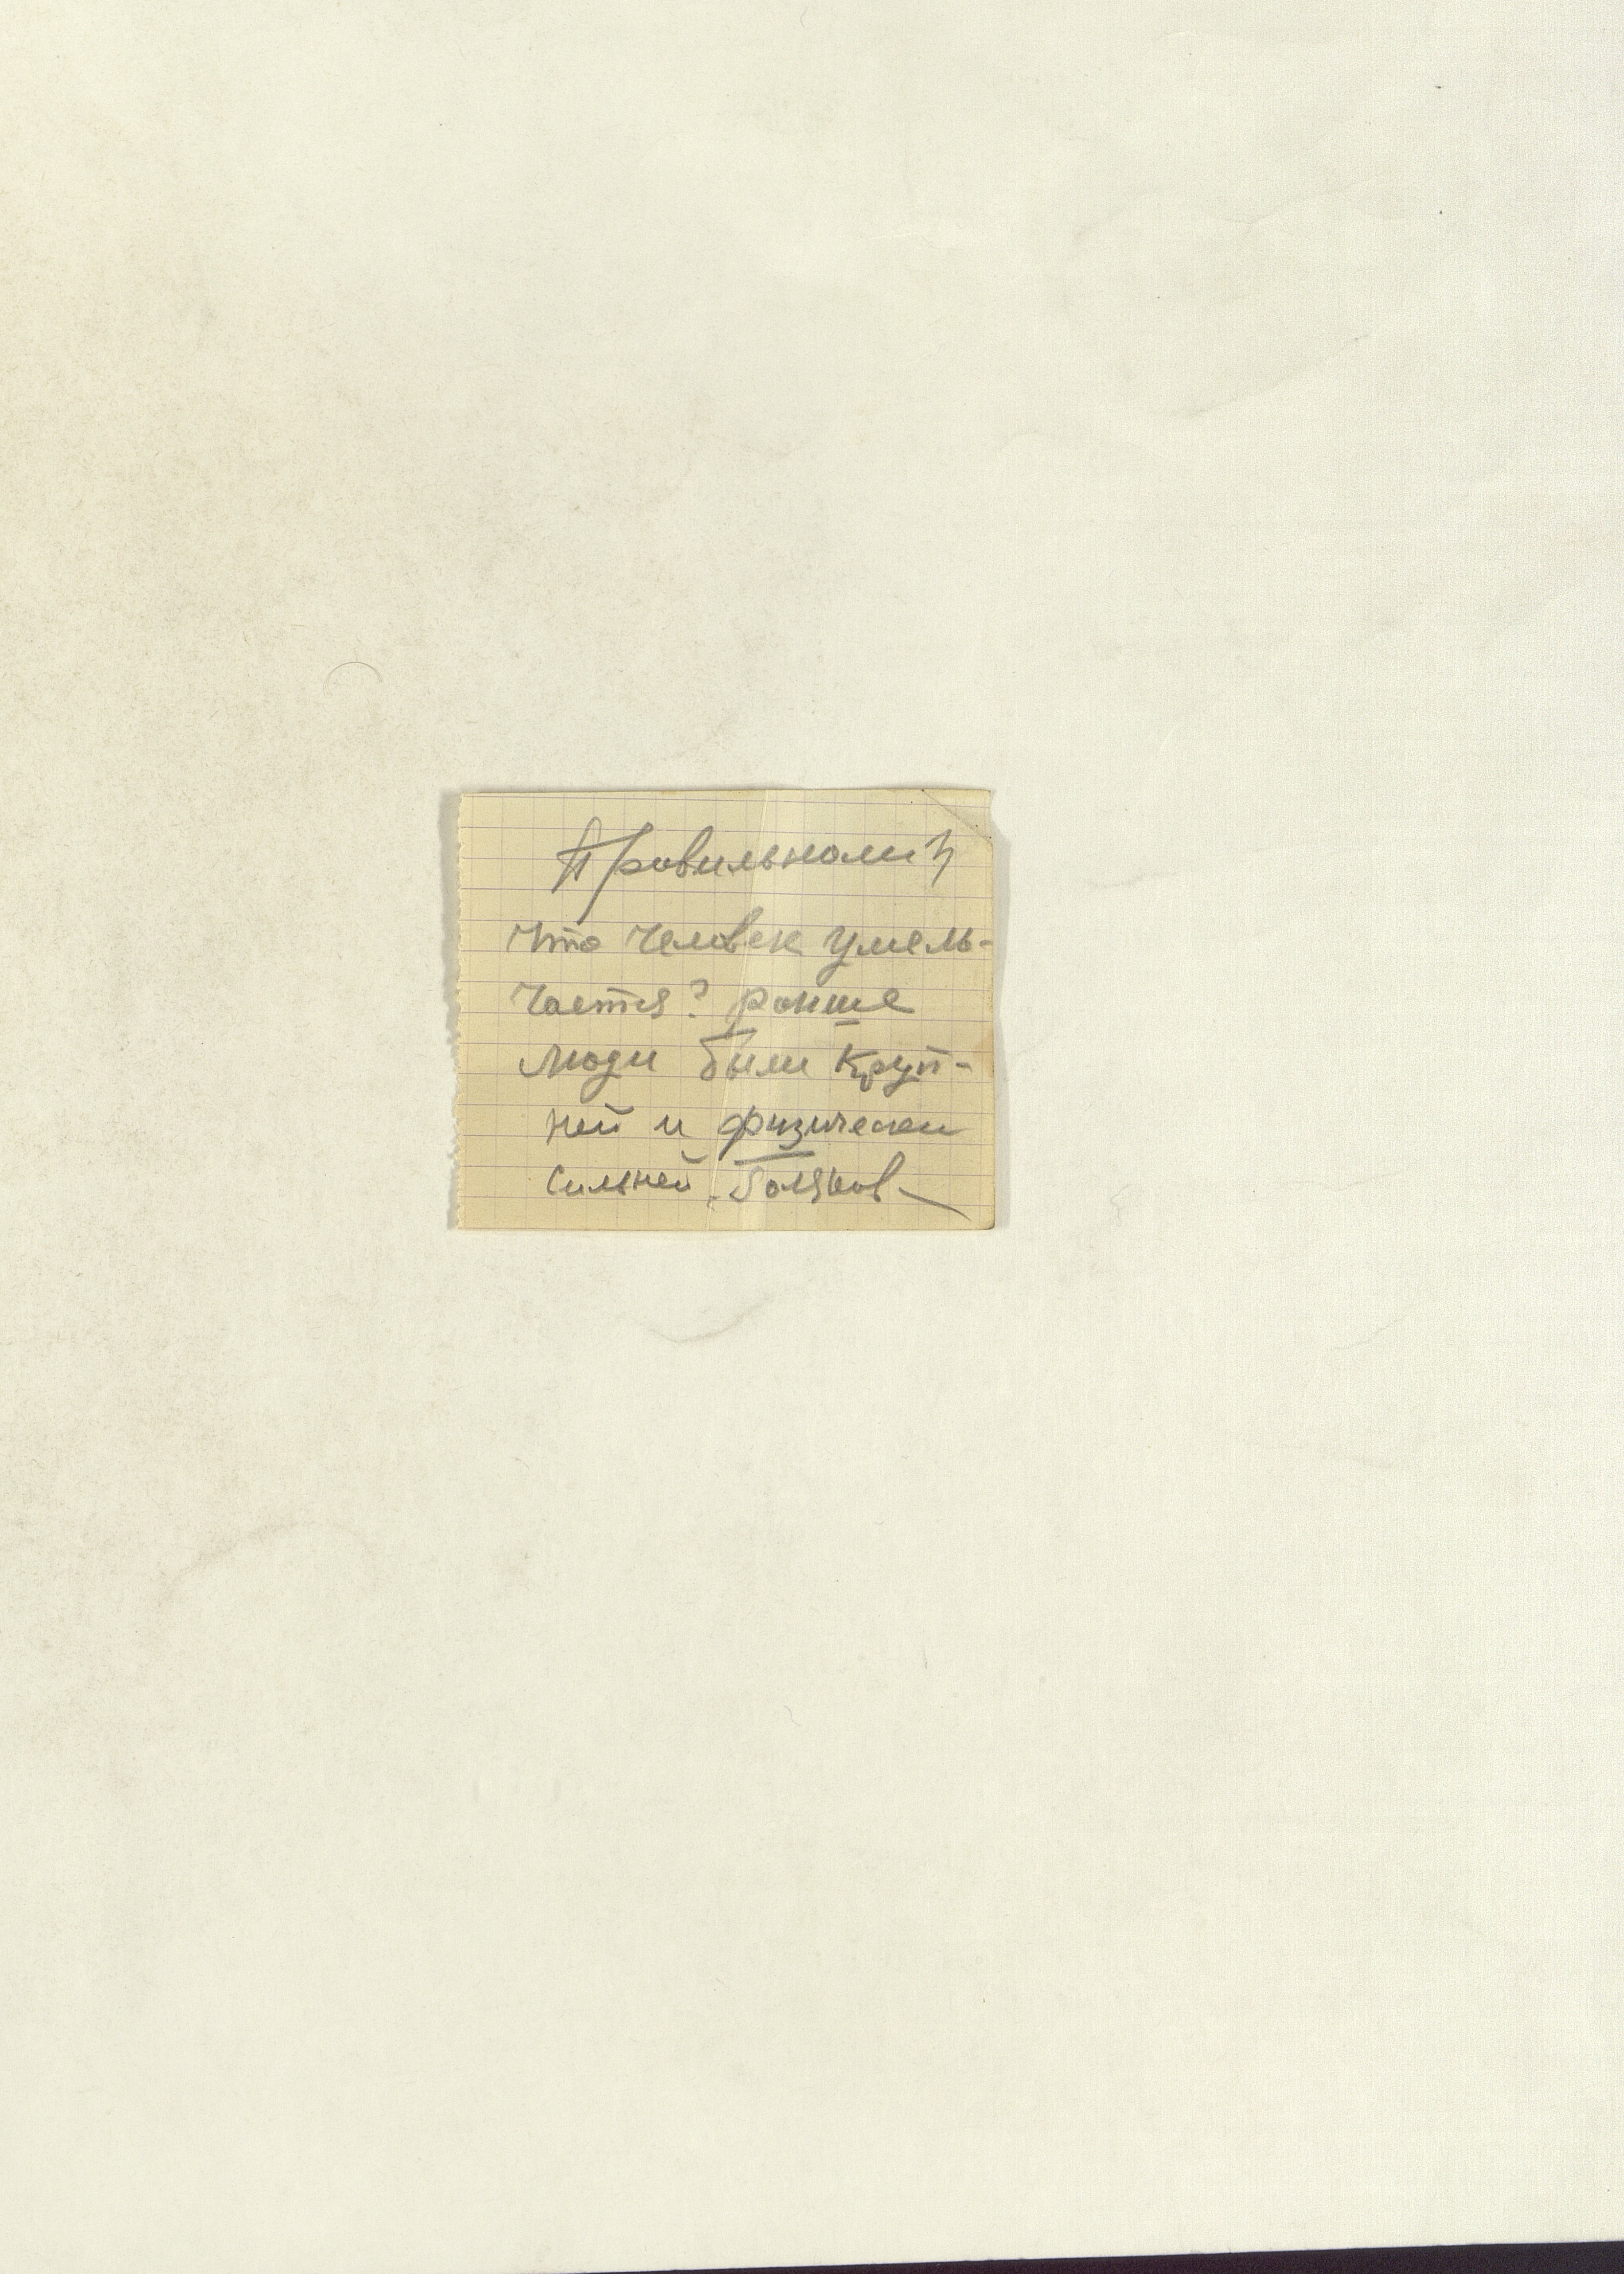 Провильноли
что человек умель-
чается? ранше
люди были круп-
ней и физически
сильней. Поляков